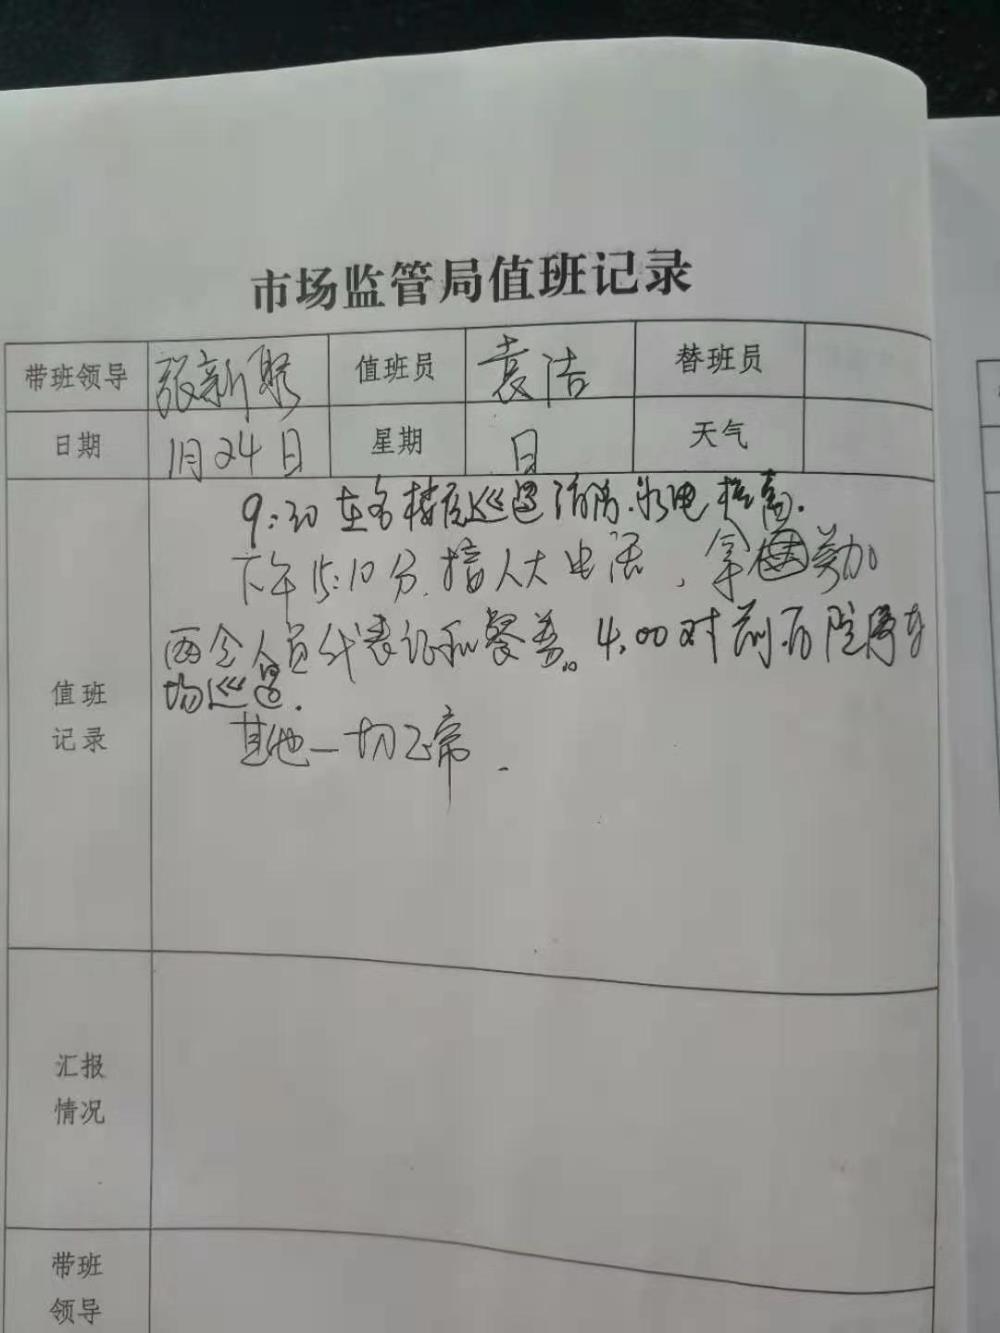 市场监管局值班记录
带班领导 张新 值班员 袁洁 替班员
日期 1月24日 星期 日 天气
值班记录
9:30在各楼层巡逻消防.水电
下午15:10分.接人大电话,拿
两会人员代表证和餐券。4.00对前后院停车
场巡逻.
其他一切正常.
汇报情况
带班领导